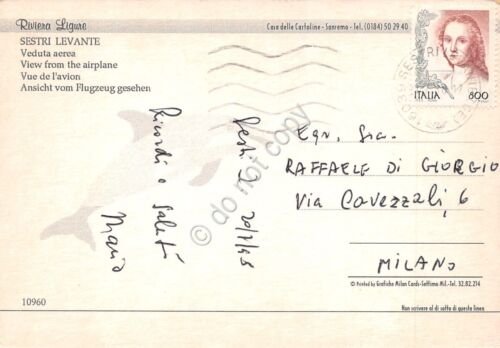 Riviera Ligure
Casa delle Cartoline - Sanremo - Tel. (0184) 50 29 40
SESTRI LEVANTE
Veduta aerea
View from the airplane
Vue de l'avion
Ansicht vom Flugzeug gesehen
ITALIA 800
Sestri L. 20/7/98
Ricordi e saluti
Mario
Egr. Sig.
RAFFAELE DI GIORGIO
Via Cavezzali, 6
MILANO
do not copy
© Printed by Grafiche Milan Cards-Settimo Mil.-Tel. 32.82.214
10960
Non scrivere al di sotto di questa linea